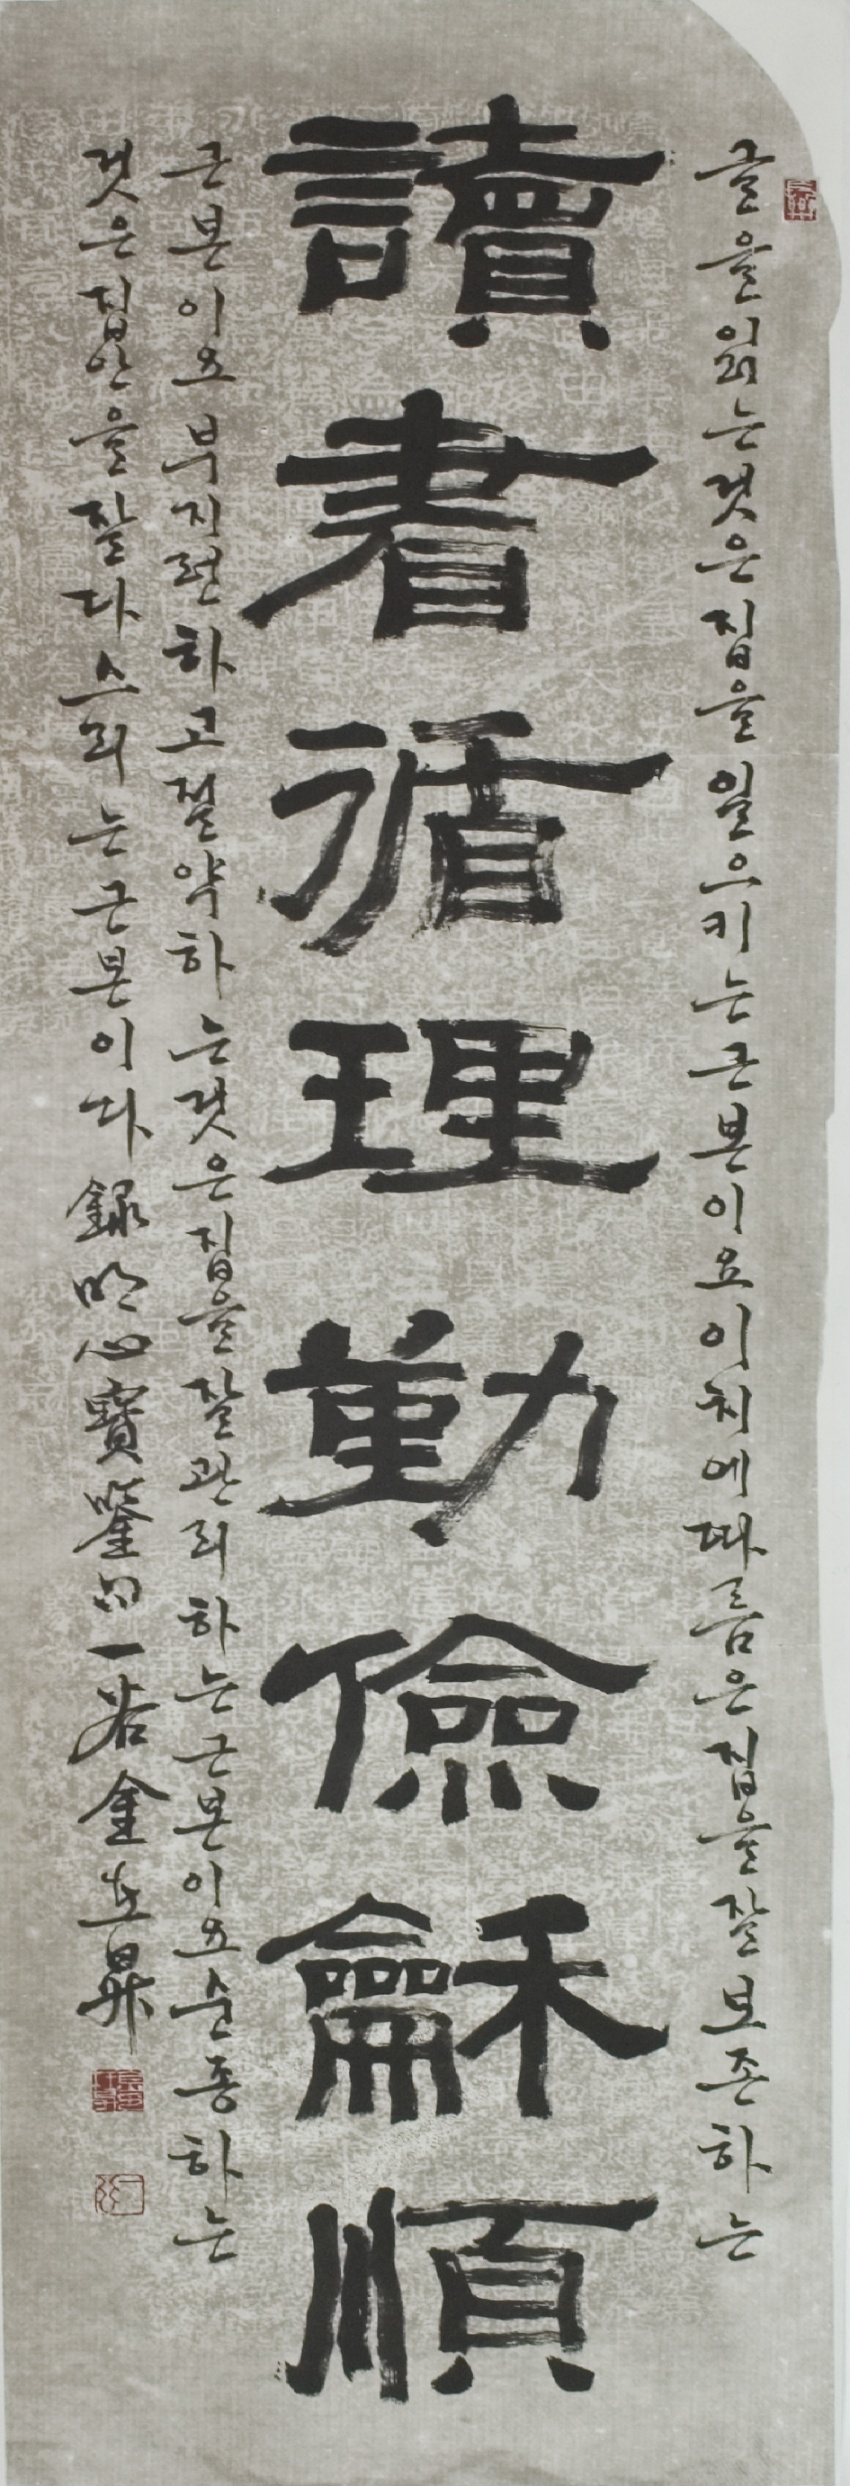 讀書循理勤儉龢順
글을읽는것은집을일으키는근본이요이치에따름은집을잘보존하는
근본이요부지런하고절약하는것은집을잘관리하는근본이요순종하는
것은집안을잘다스리는근본이다 錄明心寶鑒句一岩金在昇